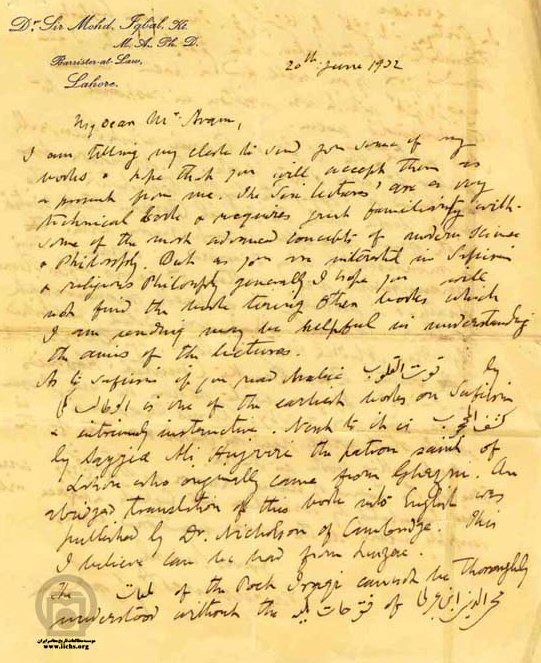 Dr Sir Mohd. Iqbal, Kt.
M. A., Ph. D.
Barrister-at-Law,
Lahore.
20th June 1932
My dear Mr Aram,
I am telling my clerk to send you some of my
works & hope that you will accept them as
a present from me. The 'Six lectures' are a very
technical book & requires great familiarity with
some of the most advanced concepts of modern science
& Philosophy. But as you are interested in Sufiism
& religious Philosophy generally I hope you will
not find the book tiring. Other works which
I am sending may be helpful in understanding
the aims of the lectures.
As to Sufiism if you read Arabic قوت القلوب by
is one of the earliest works on Sufiism
& extremely instructive. Next to it is کشف المحجوب
by Sayyid Ali Hujviri the patron saint of
Lahore who originally came from Ghazni. An
abridged translation of this work into English was
published by Dr. Nicholson of Cambridge. This
I believe can be had from Luzac.
The of the Poet Iraqi cannot be thoroughly
understood without the فتوحات of محی الدین ابن عربی
موسسه مطالعات تاریخ معاصر ایران
www.iichs.org